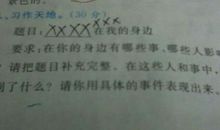 景色的。
习作天地。(30分)
题目:XXXX在我的身边
要求:在你的身边有哪些事,哪些人影
?请把题目补充完整。在这些人和事中,
到了什么?请你用具体的事件表现出来。